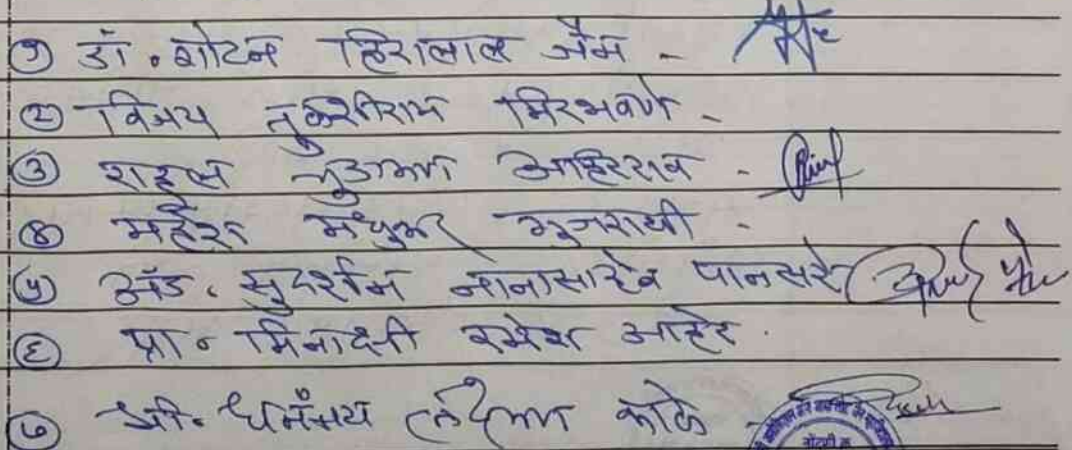 १) डॉ. शोटन हिरालाल जैन -
२) विजय तुळशीराम मिरभवणे -
३) राहुल आहिरराव -
४) महेश मधुकर गुजराथी -
५) अॅड. सुदर्शन नानासाहेब पानसरे
६) प्रा. मिनाक्षी रमेश आहेर.
७) श्री. धनंजय लक्ष्मण काळे